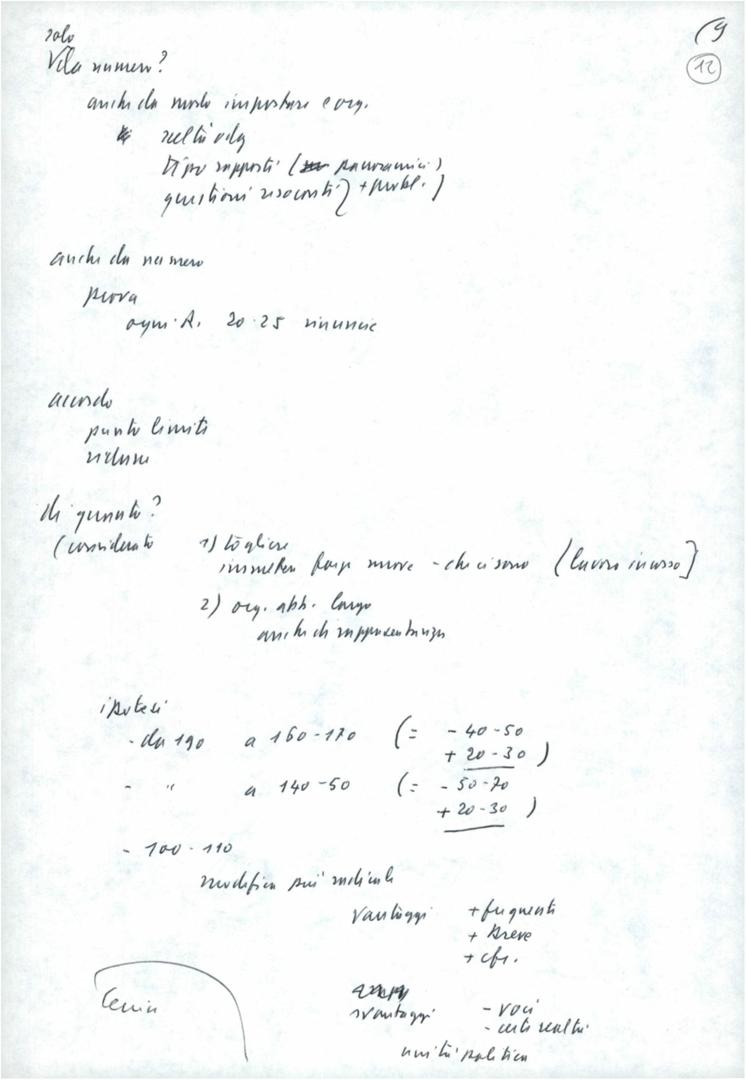 solo
(9
V da numero?
12
anche da modo impostare e org.
scelta odg
tipo rapporti ( panoramici)
questioni resoconti] + probl.)
anche da numero
prova
ogni A. 20-25 rinunce
accordo
punto limiti
ridurre
di quanto?
(considerato 1) togliere
immettere forze nuove - che ci sono (lavoro in corso]
2) org. abb. largo
anche di rappresentanza
ipotesi
- da 190 a 160-170 (= - 40-50
+ 20-30)
- " a 140-50 (= - 50-70
+ 20-30)
- 100-110
modifica più radicale
vantaggi + frequenti
+ breve
+ cfr.
svantaggi - voci
- certe realtà
unità politica